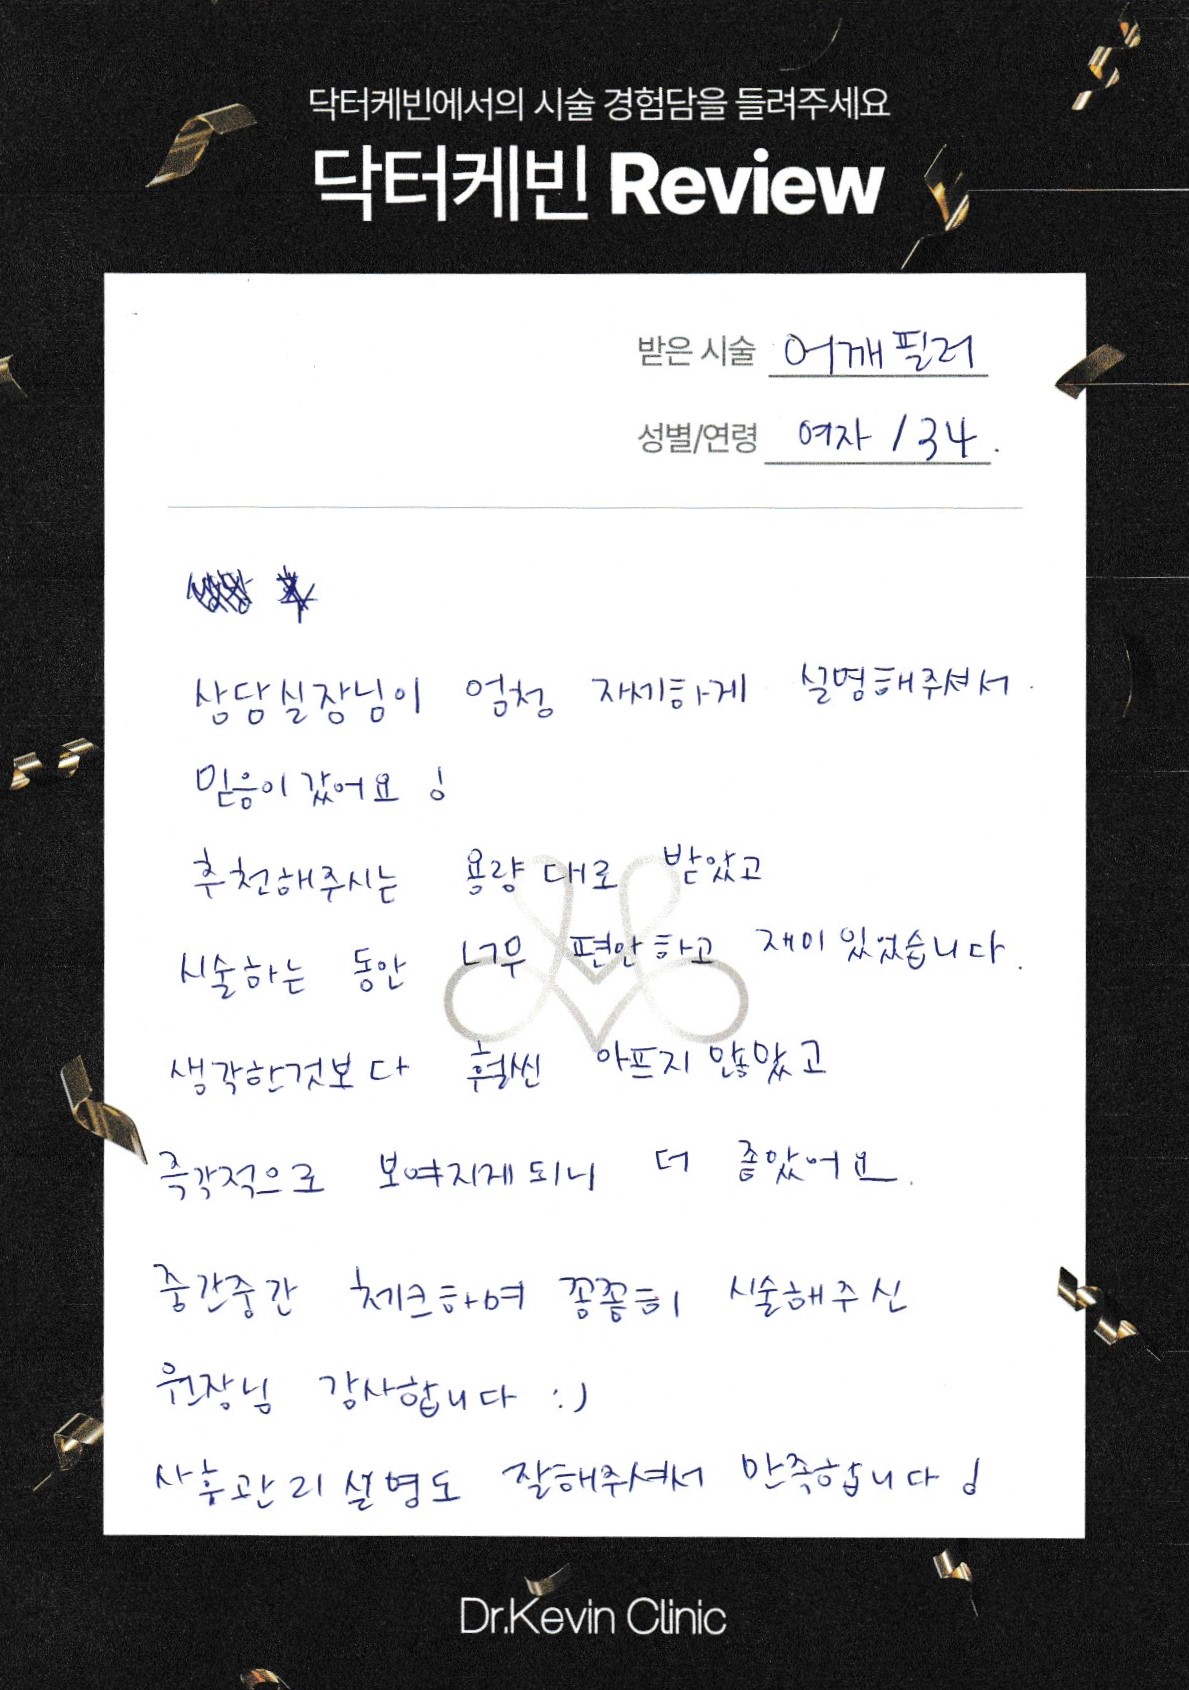 닥터케빈에서의 시술 경험담을 들려주세요
닥터케빈 Review
받은 시술 어깨필러
성별/연령 여자 / 34.
상담실장님이 엄청 자세하게 설명해주셔서
믿음이 갔어요!
추천해주시는 용량대로 받았고
시술하는 동안 너무 편안하고 재미있었습니다.
생각한것보다 훨씬 아프지 않았고
즉각적으로 보여지게되니 더 좋았어요.
중간중간 체크하며 꼼꼼히 시술해주신
원장님 감사합니다 :)
사후관리설명도 잘해주셔서 만족합니다!
Dr.Kevin Clinic